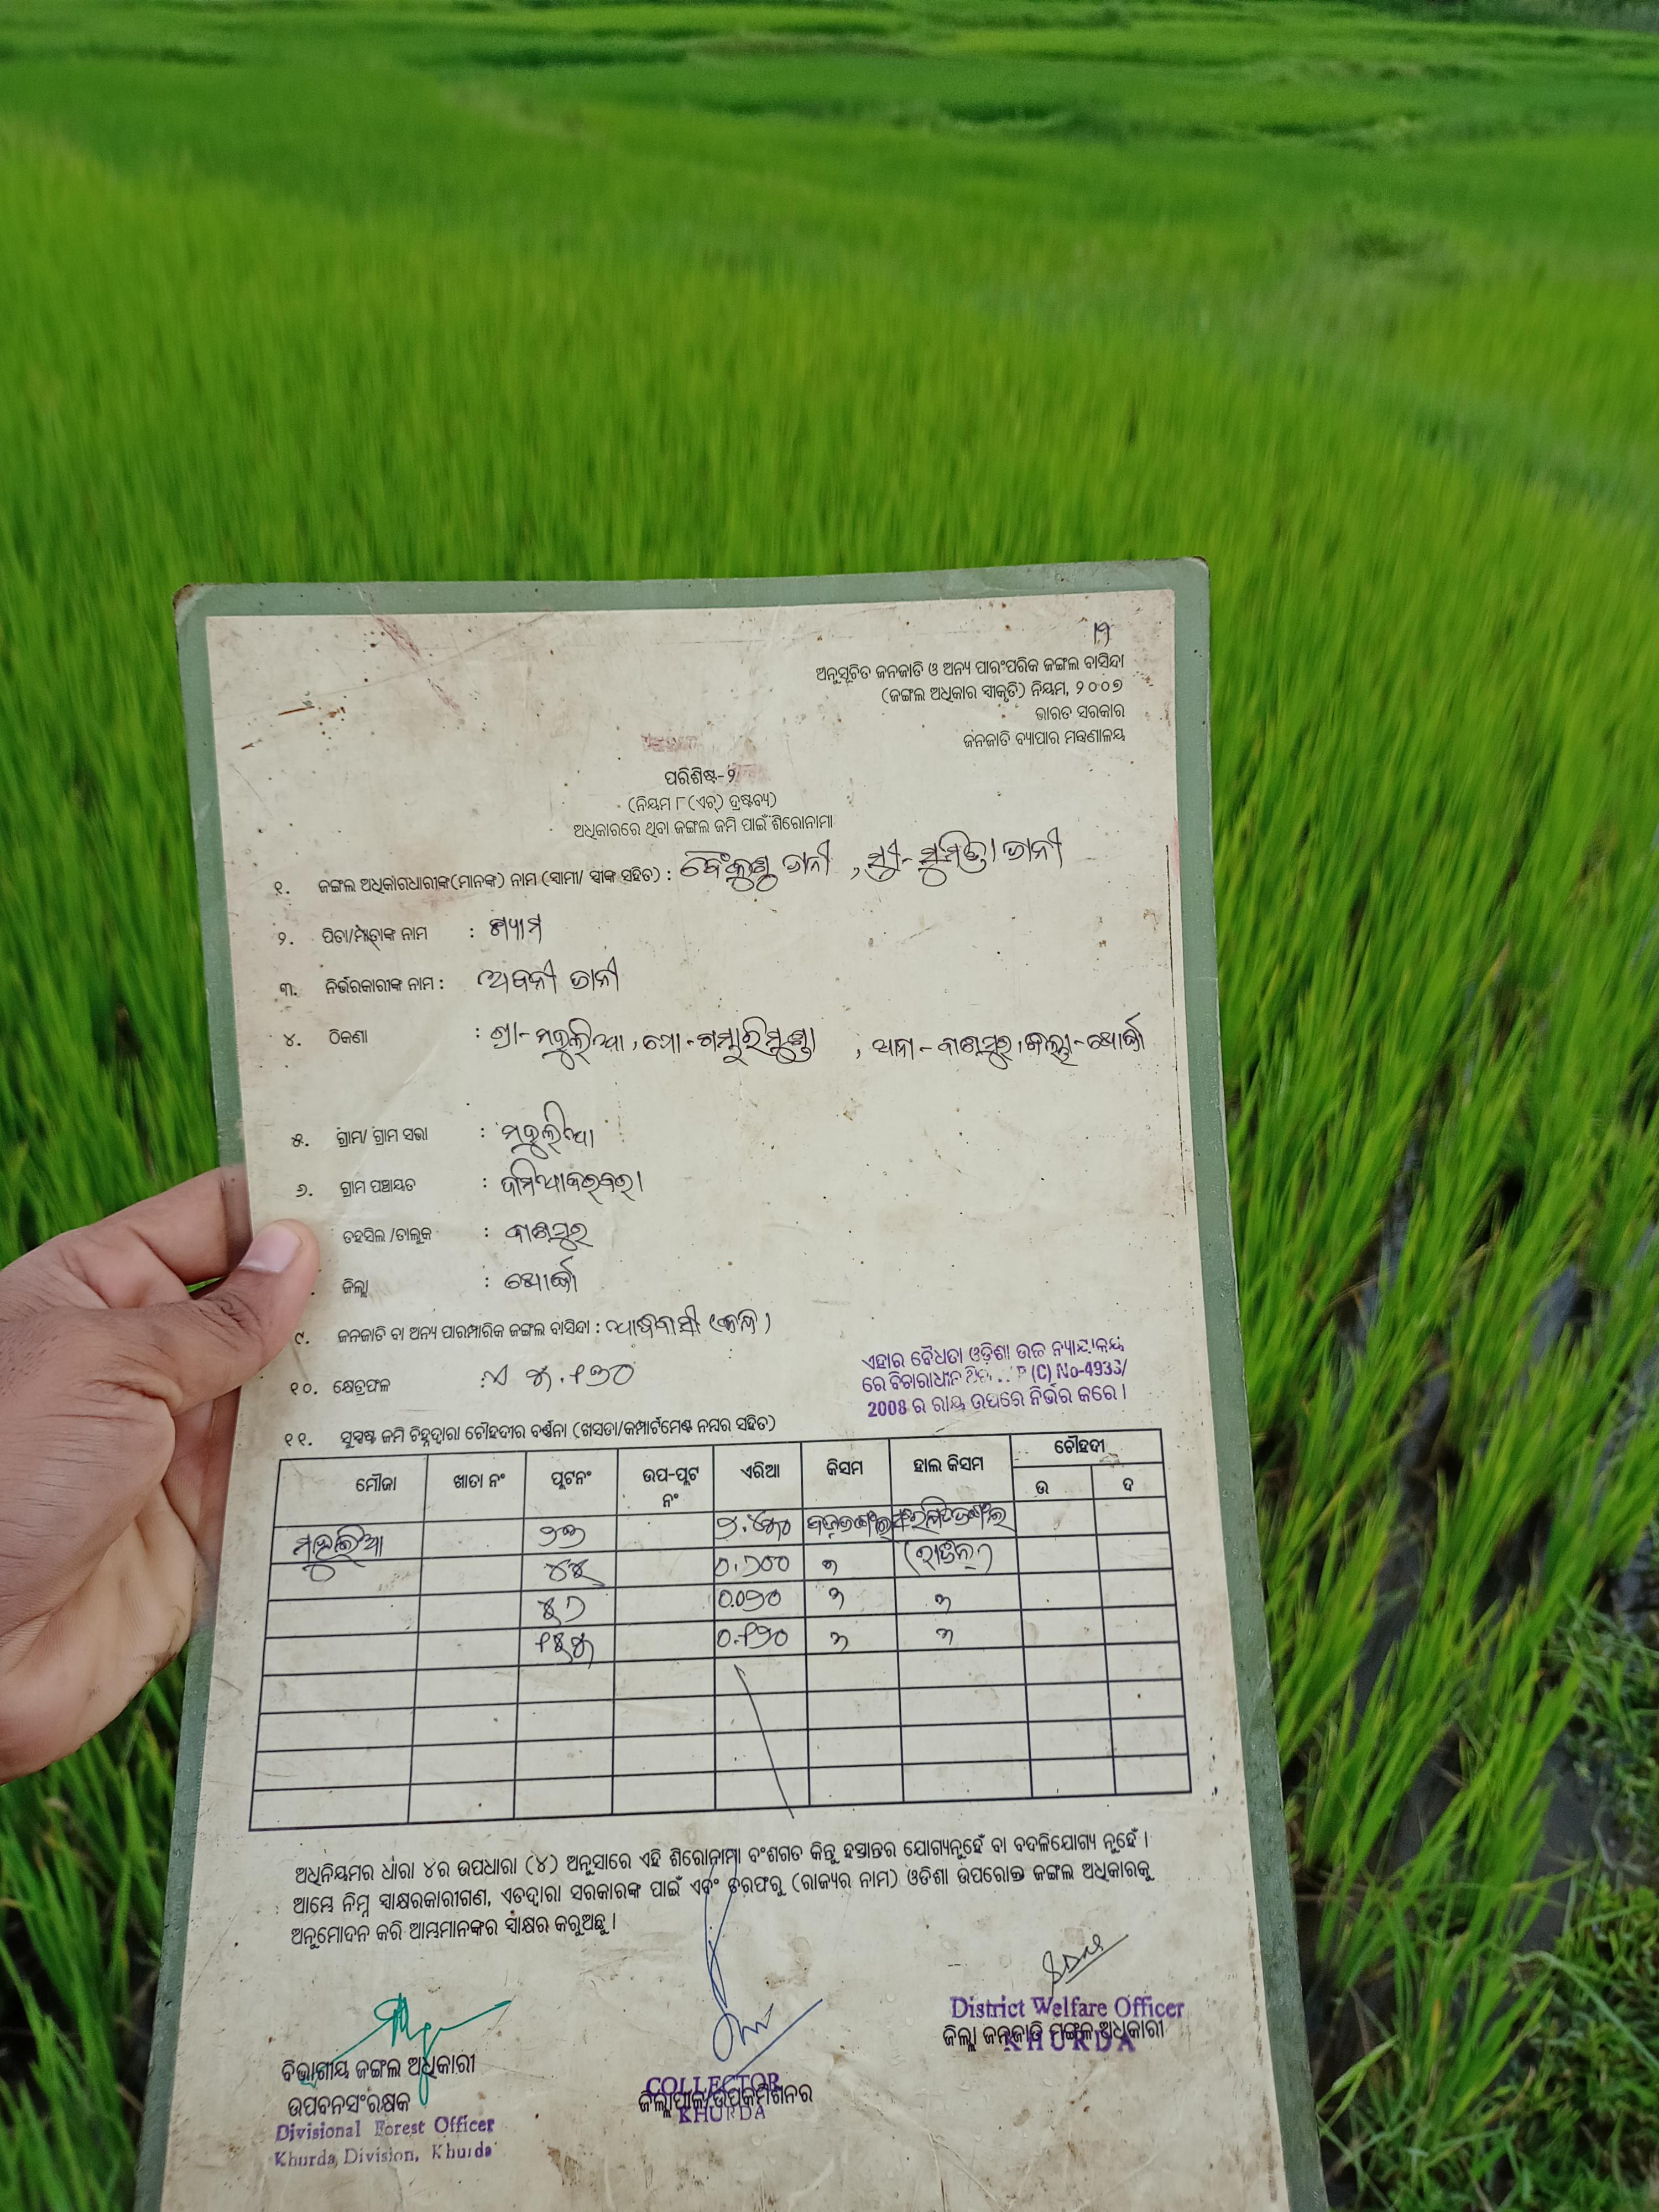 ଅନୁସୂଚିତ ଜନଜାତି ଓ ଅନ୍ୟ ପାରଂପରିକ ଜଙ୍ଗଲ ବାସିନ୍ଦା
(ଜଙ୍ଗଲ ଅଧିକାର ସ୍ୱୀକୃତି) ନିୟମ, ୨୦୦୭
ଭାରତ ସରକାର
ଜନଜାତି ବ୍ୟାପାର ମନ୍ତ୍ରଣାଳୟ
ପରିଶିଷ୍ଟ-୨
(ନିୟମ ୮(ଏଚ୍) ଦ୍ରଷ୍ଟବ୍ୟ)
ଅଧିକାରରେ ଥିବା ଜଙ୍ଗଲ ଜମି ପାଇଁ ଶିରୋନାମା
୧. ଜଙ୍ଗଲ ଅଧିକାରଧାରୀଙ୍କ(ମାନଙ୍କ) ନାମ (ସ୍ୱାମୀ/ ସ୍ତ୍ରୀଙ୍କ ସହିତ) : ବୈକୁଣ୍ଠ ଜାନୀ , ସ୍ତ୍ରୀ-ସୁମିତ୍ରା ଜାନୀ
୨. ପିତା/ମାତାଙ୍କ ନାମ : ଶ୍ୟାମ
୩. ନିର୍ଭରକାରୀଙ୍କ ନାମ : ଅବନୀ ଜାନୀ
୪. ଠିକଣା : ଗ୍ରା- ମହୁଲିଆ, ପୋ-ଗମ୍ଭାରିମୁଣ୍ଡା , ଥାନା-ବାଣପୁର, ଜିଲ୍ଲା-ଖୋର୍ଦ୍ଧା
୫. ଗ୍ରାମ/ ଗ୍ରାମ ସଭା : ମହୁଲିଆ
୬. ଗ୍ରାମ ପଞ୍ଚାୟତ :
ତହସିଲ /ତାଲୁକ : ବାଣପୁର
ଜିଲ୍ଲା : ଖୋର୍ଦ୍ଧା
୯. ଜନଜାତି ବା ଅନ୍ୟ ପାରମ୍ପାରିକ ଜଙ୍ଗଲ ବାସିନ୍ଦା : ଆଦିବାସୀ (କନ୍ଧ)
୧୦. କ୍ଷେତ୍ରଫଳ :
ଏହାର ବୈଧତା ଓଡ଼ିଶା ଉଚ୍ଚ ନ୍ୟାୟାଳୟ
ରେ ବିଚାରାଧୀନ (C) No-4933/
2008 ର ରାୟ ଉପରେ ନିର୍ଭର କରେ ।
୧୧. ସୁସ୍ପଷ୍ଟ ଜମି ଚିହ୍ନଦ୍ୱାରା ଚୌହଦୀର ବର୍ଣ୍ଣନା (ଖସଡା/କମ୍ପାର୍ଟମେଣ୍ଟ ନମ୍ବର ସହିତ)
ମୌଜା ଖାତା ନଂ ପ୍ଲଟନଂ ଉପ-ପ୍ଲଟ ନଂ ଏରିଆ କିସମ ହାଲ କିସମ ଚୌହଦୀ
ଉ ଦ
ମହୁଲିଆ
ଅଧିନିୟମର ଧାରା ୪ର ଉପଧାରା (୪) ଅନୁସାରେ ଏହି ଶିରୋନାମା ବଂଶଗତ କିନ୍ତୁ ହସ୍ତାନ୍ତର ଯୋଗ୍ୟନୁହେଁ ବା ବଦଳିଯୋଗ୍ୟ ନୁହେଁ ।
ଆମ୍ଭେ ନିମ୍ନ ସ୍ୱାକ୍ଷରକାରୀଗଣ, ଏତଦ୍ୱାରା ସରକାରଙ୍କ ପାଇଁ ଏବଂ ତରଫରୁ (ରାଜ୍ୟର ନାମ) ଓଡିଶା ଉପରୋକ୍ତ ଜଙ୍ଗଲ ଅଧିକାରକୁ
ଅନୁମୋଦନ କରି ଆମ୍ଭମାନଙ୍କର ସ୍ୱାକ୍ଷର କରୁଅଛୁ ।
District Welfare Officer
ଜିଲ୍ଲା ଜନଜାତି ମଙ୍ଗଳ ଅଧିକାରୀ
KHURDA
ବିଭାଗୀୟ ଜଙ୍ଗଲ ଅଧିକାରୀ
ଉପବନସଂରକ୍ଷକ
Divisional Forest Officer
Khurda Division, Khurda
COLLECTOR
ଜିଲ୍ଲାପାଳ/ଉପକମିଶନର
KHURDA